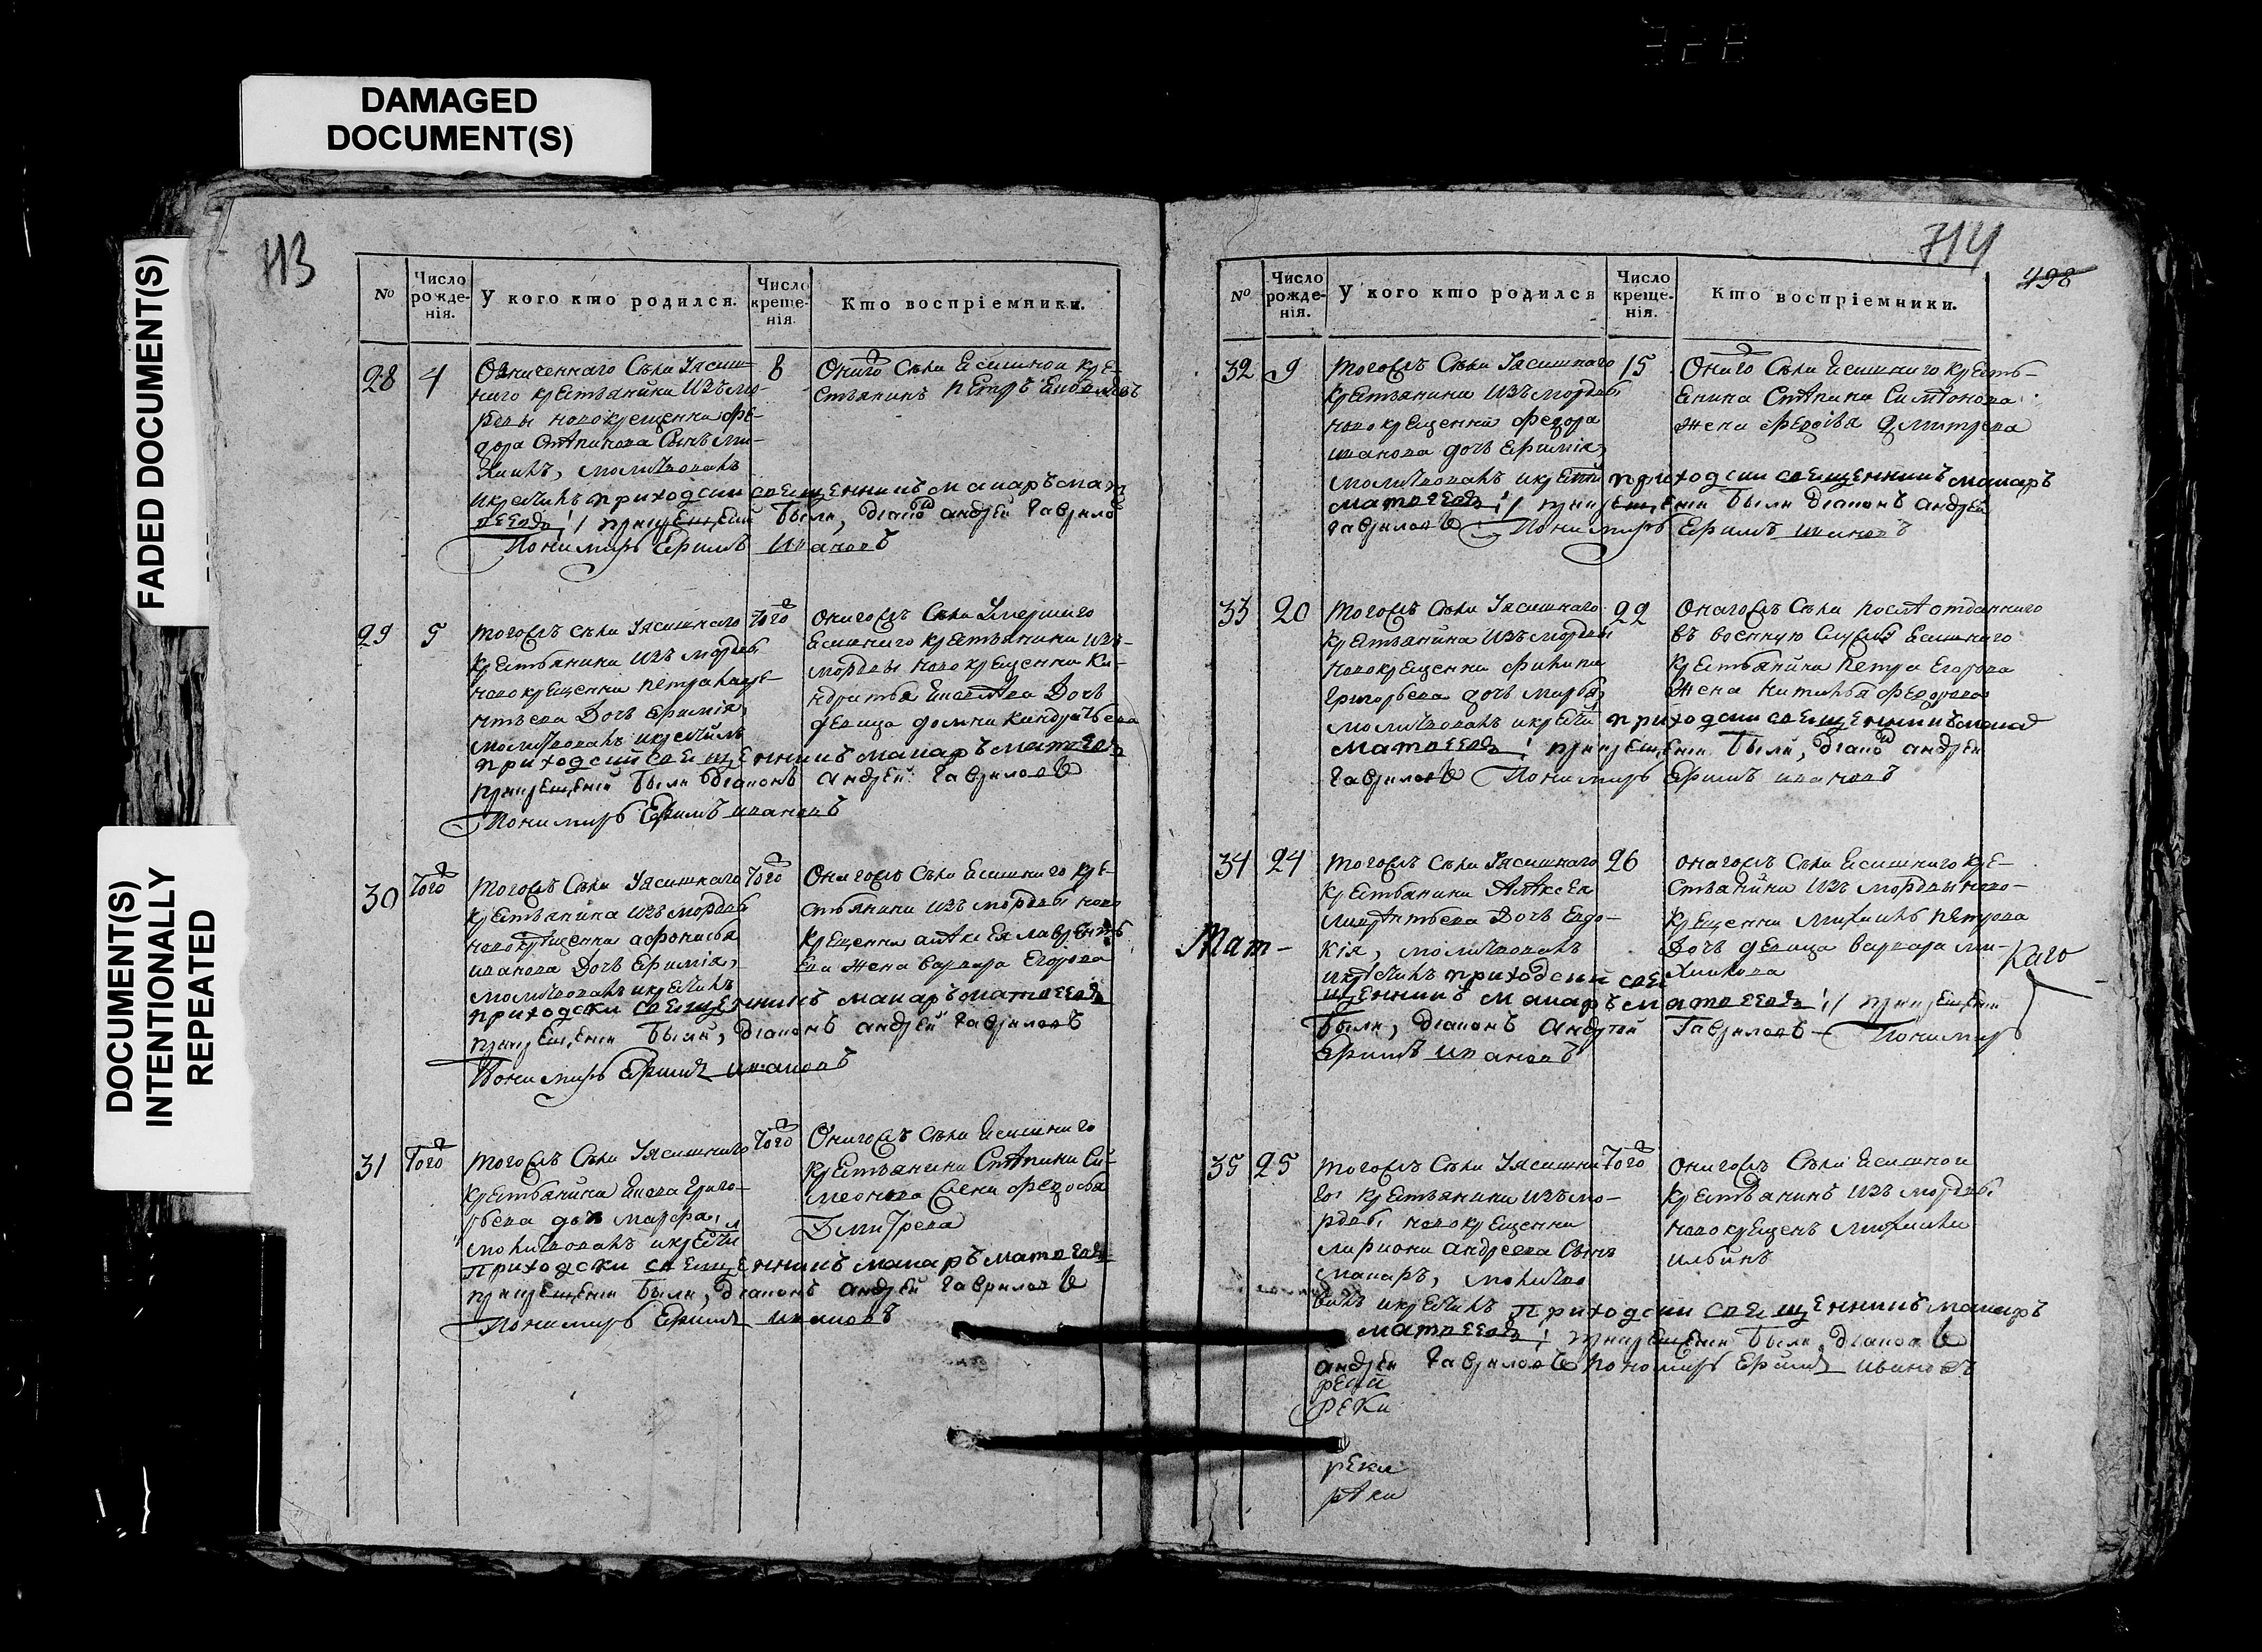 DAMAGED
DOCUMENT(S)
FADED DOCUMENT(S)
DOCUMENT(S)
INTENTIONALLY
REPEATED
713
№
Число рожде-нія.
У кого кто родился.
Число креще-нія.
Кто воспріемники.
28 4
крестьянина изъ мо-
рдвы новокрещенна Фе-
дора Степанова сынъ Ми-
хаилъ, молитвовалъ
и крестилъ приходски священникъ макаръ мат
вееві при крещеніи были, діаконъ андреи Гаврило
Пономарь Ефимъ ивановъ
8
Оного села ясашнои кре-
стьянинъ петръ
29 5
тогожъ села Ясашнаго
крестьянина изъ мордвы
новокрещенна петра
Дочь
молитвовалъ и крестилъ
приходски священникъ макаръ матвеевъ
при крещеніи были діаконъ андреи Гавриловъ
Пономарь Ефимъ ивановъ
того
Оногожъ села умершаго
ясашнаго крестьянина изъ
мордвы новокрещенна Ки-
Дочь
девица
30 того
тогожъ села Ясашнаго
крестьянина изъ мордвы
новокрещенна афонасья
иванова Дочь
молитвовалъ и крестилъ
приходски священникъ макаръ матвеевъ
при крещеніи были, діаконъ андреи Гавриловъ
Пономарь Ефимъ ивановъ
того
Оногожъ села ясашнаго кре-
стьянина изъ мордвы ново
крещенна алексея лаврентье
ва жена варвара Егорова
31 того
тогожъ села Ясашнаго
крестьянина Григо-
рьева дочь марфа,
молитвовалъ и крестил
приходски священникъ макаръ матвеевъ
при крещеніи были, діаконъ андреи Гавриловъ
Пономарь Ефимъ ивановъ
того
Оногожъ села ясашнаго
крестьянина Степана Си-
меонова жена Федосья
Дмитрева
714
498
№
Число рожде-нія.
У кого кто родился
Число креще-нія.
Кто воспріемники.
32 9
тогожъ села Ясашнаго
крестьянина изъ мордвы
новокрещенна Федора
иванова дочь
молитвовалъ и крести приходски священникъ макаръ
матвеевъ при крещеніи были діаконъ андреи
Гавриловъ Пономарь Ефимъ ивановъ
15
Оного села ясашнаго кресть-
янина Степана Симеонова
жена Федосья Дмитрева
33 20
тогожъ села Ясашнаго
крестьянина изъ мордвы
новокрещенна филипа
Григорьева дочь марфа
молитвовалъ и крести приходски священникъ
матвеевъ при крещеніи были, діако андреи
Гавриловъ Пономарь Ефимъ ивановъ
22
Оногожъ села после отданнаго
въ военную службу ясашнаго
крестьянина Петра Егорова
жена наталья Федорова
34 24
тогожъ села Ясашнаго
крестьянина Алексея
Дочь Евдо-
кія, молитвовалъ
и крестилъ приходски свя
щенникъ макаръ матвеевъ при крещеніи
были, діаконъ Андреи Гавриловъ Пономарь
Ефимъ ивановъ
26
оногожъ села ясашнаго кре-
стьянина изъ мордвы ново-
крещенна Михаилъ петрова
Дочь девица варвара ми-
хаилова
Мат-
каго
35 25
тогожъ села Ясашна
го крестьянина изъ мо-
рдвы новокрещенна
лариона андреева сынъ
макаръ, молитво
валъ и крестилъ приходски священникъ макаръ
матвеевъ при крещеніи были діаконъ
андреи Гавриловъ пономарь Ефимъ ивановъ
того
оногожъ села ясашнои
крестьянинъ изъ мордвы
новокрещенъ михаила
ильинъ
реки
реки
реки
реки